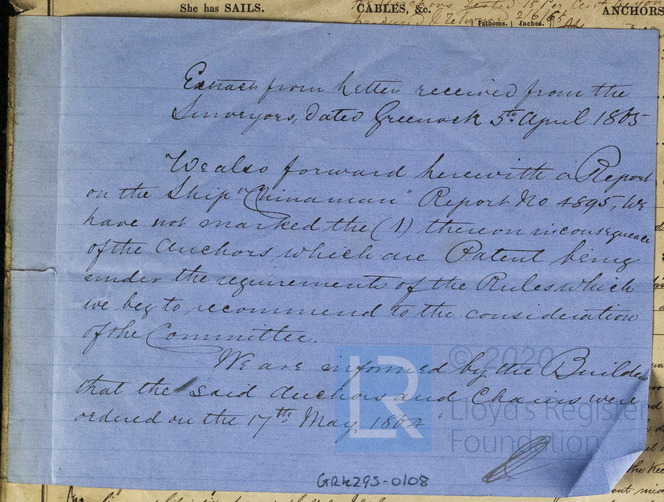 She has SAILS.
CABLES, &c.
ANCHORS
Fathoms. Inches.
Extract from Letter received from the
Surveyors, dated Greenock 5th April 1865
We also forward herewith a Report
on the Ship "Chinaman" Report No 4895, We
have not marked the (1) thereon in consequence
of the Anchors which are Patent being
under the requirements of the Rules which
we beg to recommend to the consideration
of the Committee.
We are informed by the Builder
that the said Anchors and Chains were
ordered on the 17th May 1864
LR
© 2020
Lloyd's Register
Foundation
GRK295-0108